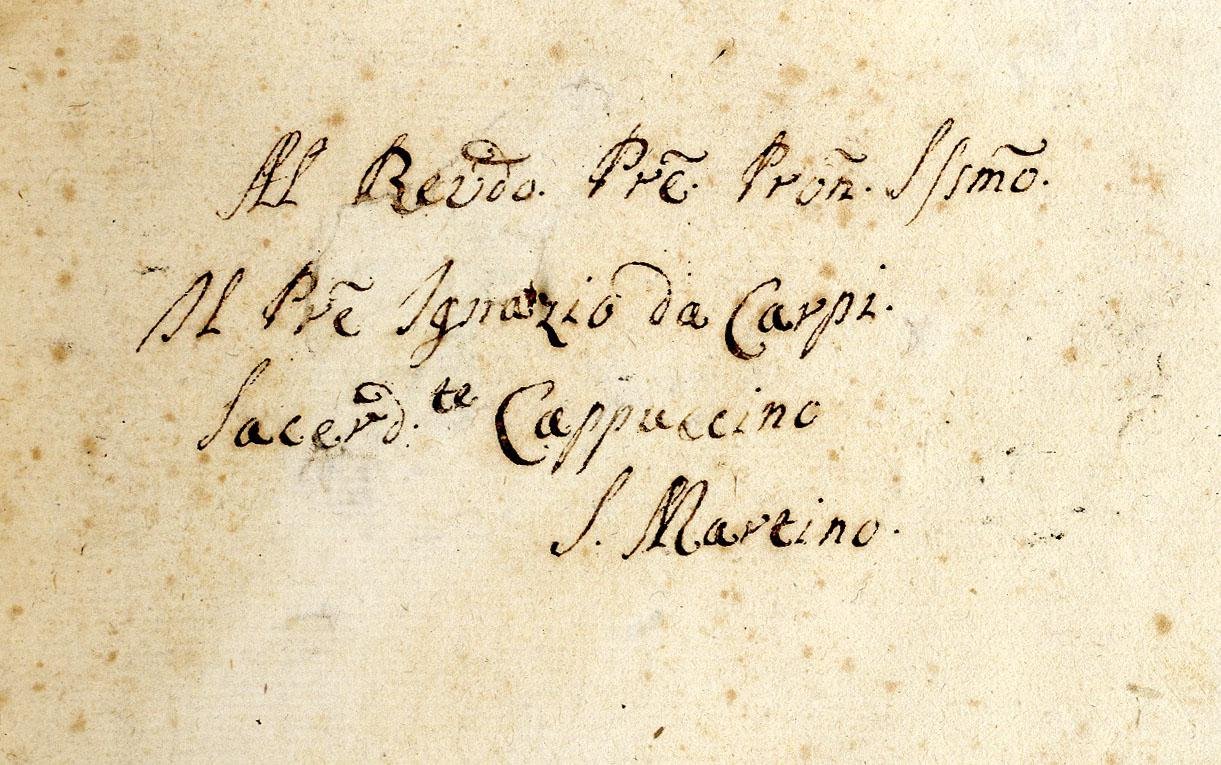 Al Revdo. Prẽ. Proñ. Issm̃o.
Il Prẽ Ignazio da Carpi.
Sacerd.te Cappuccino
S. Martino.